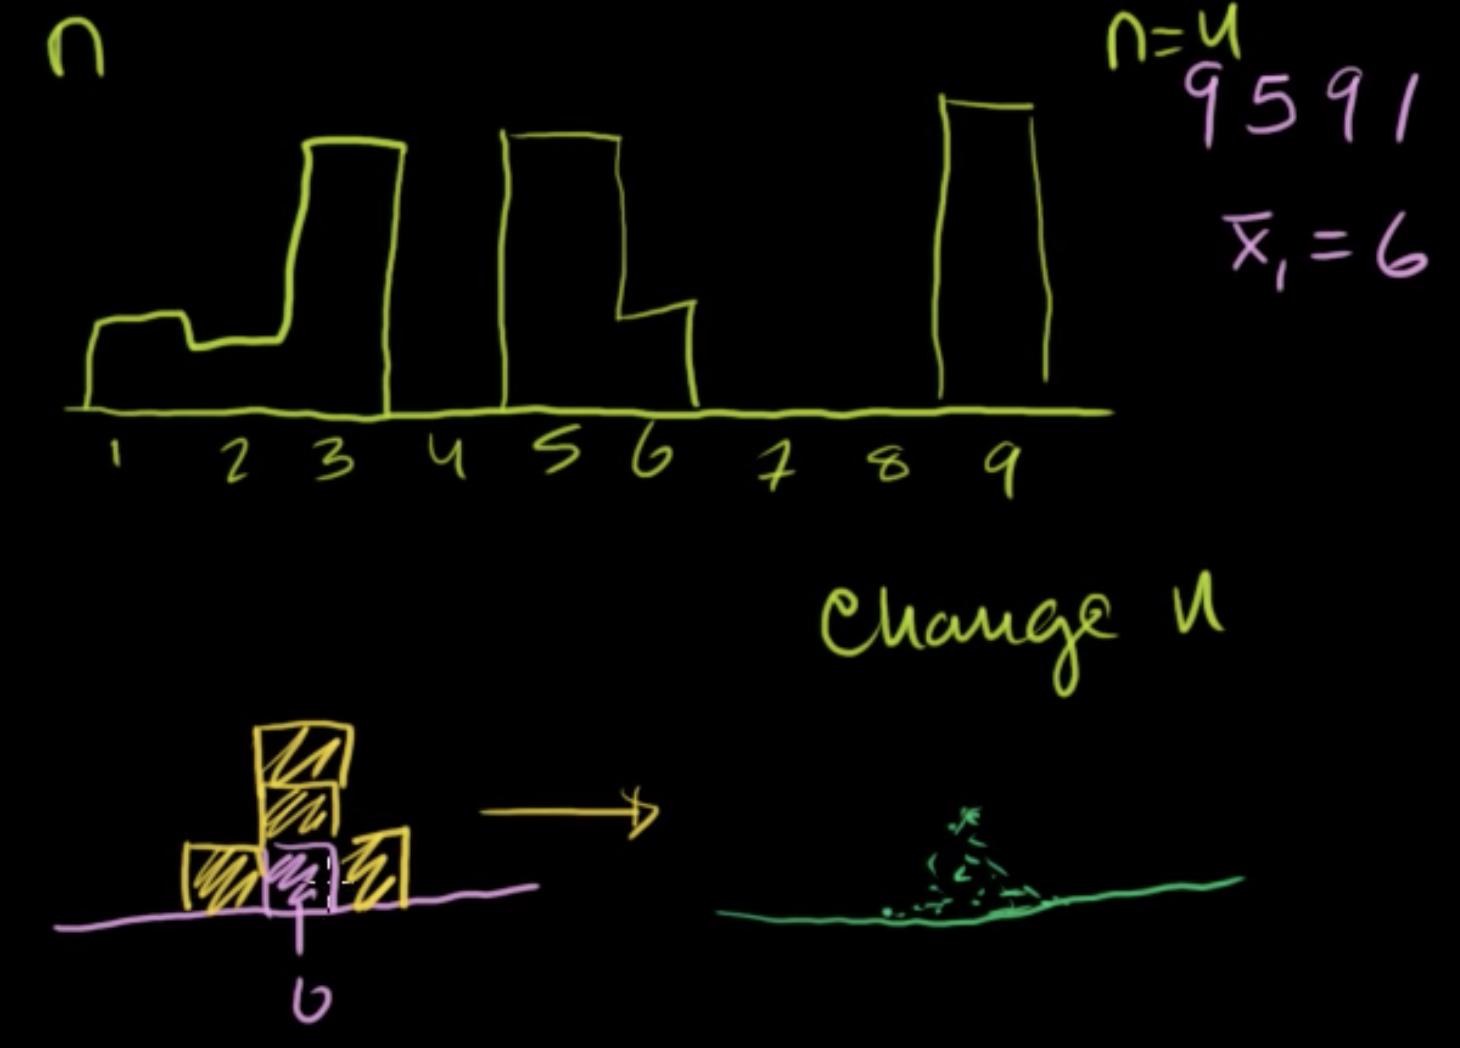 n
n=4
9 5 9 1
x̄₁ = 6
1 2 3 4 5 6 7 8 9
Change n
6